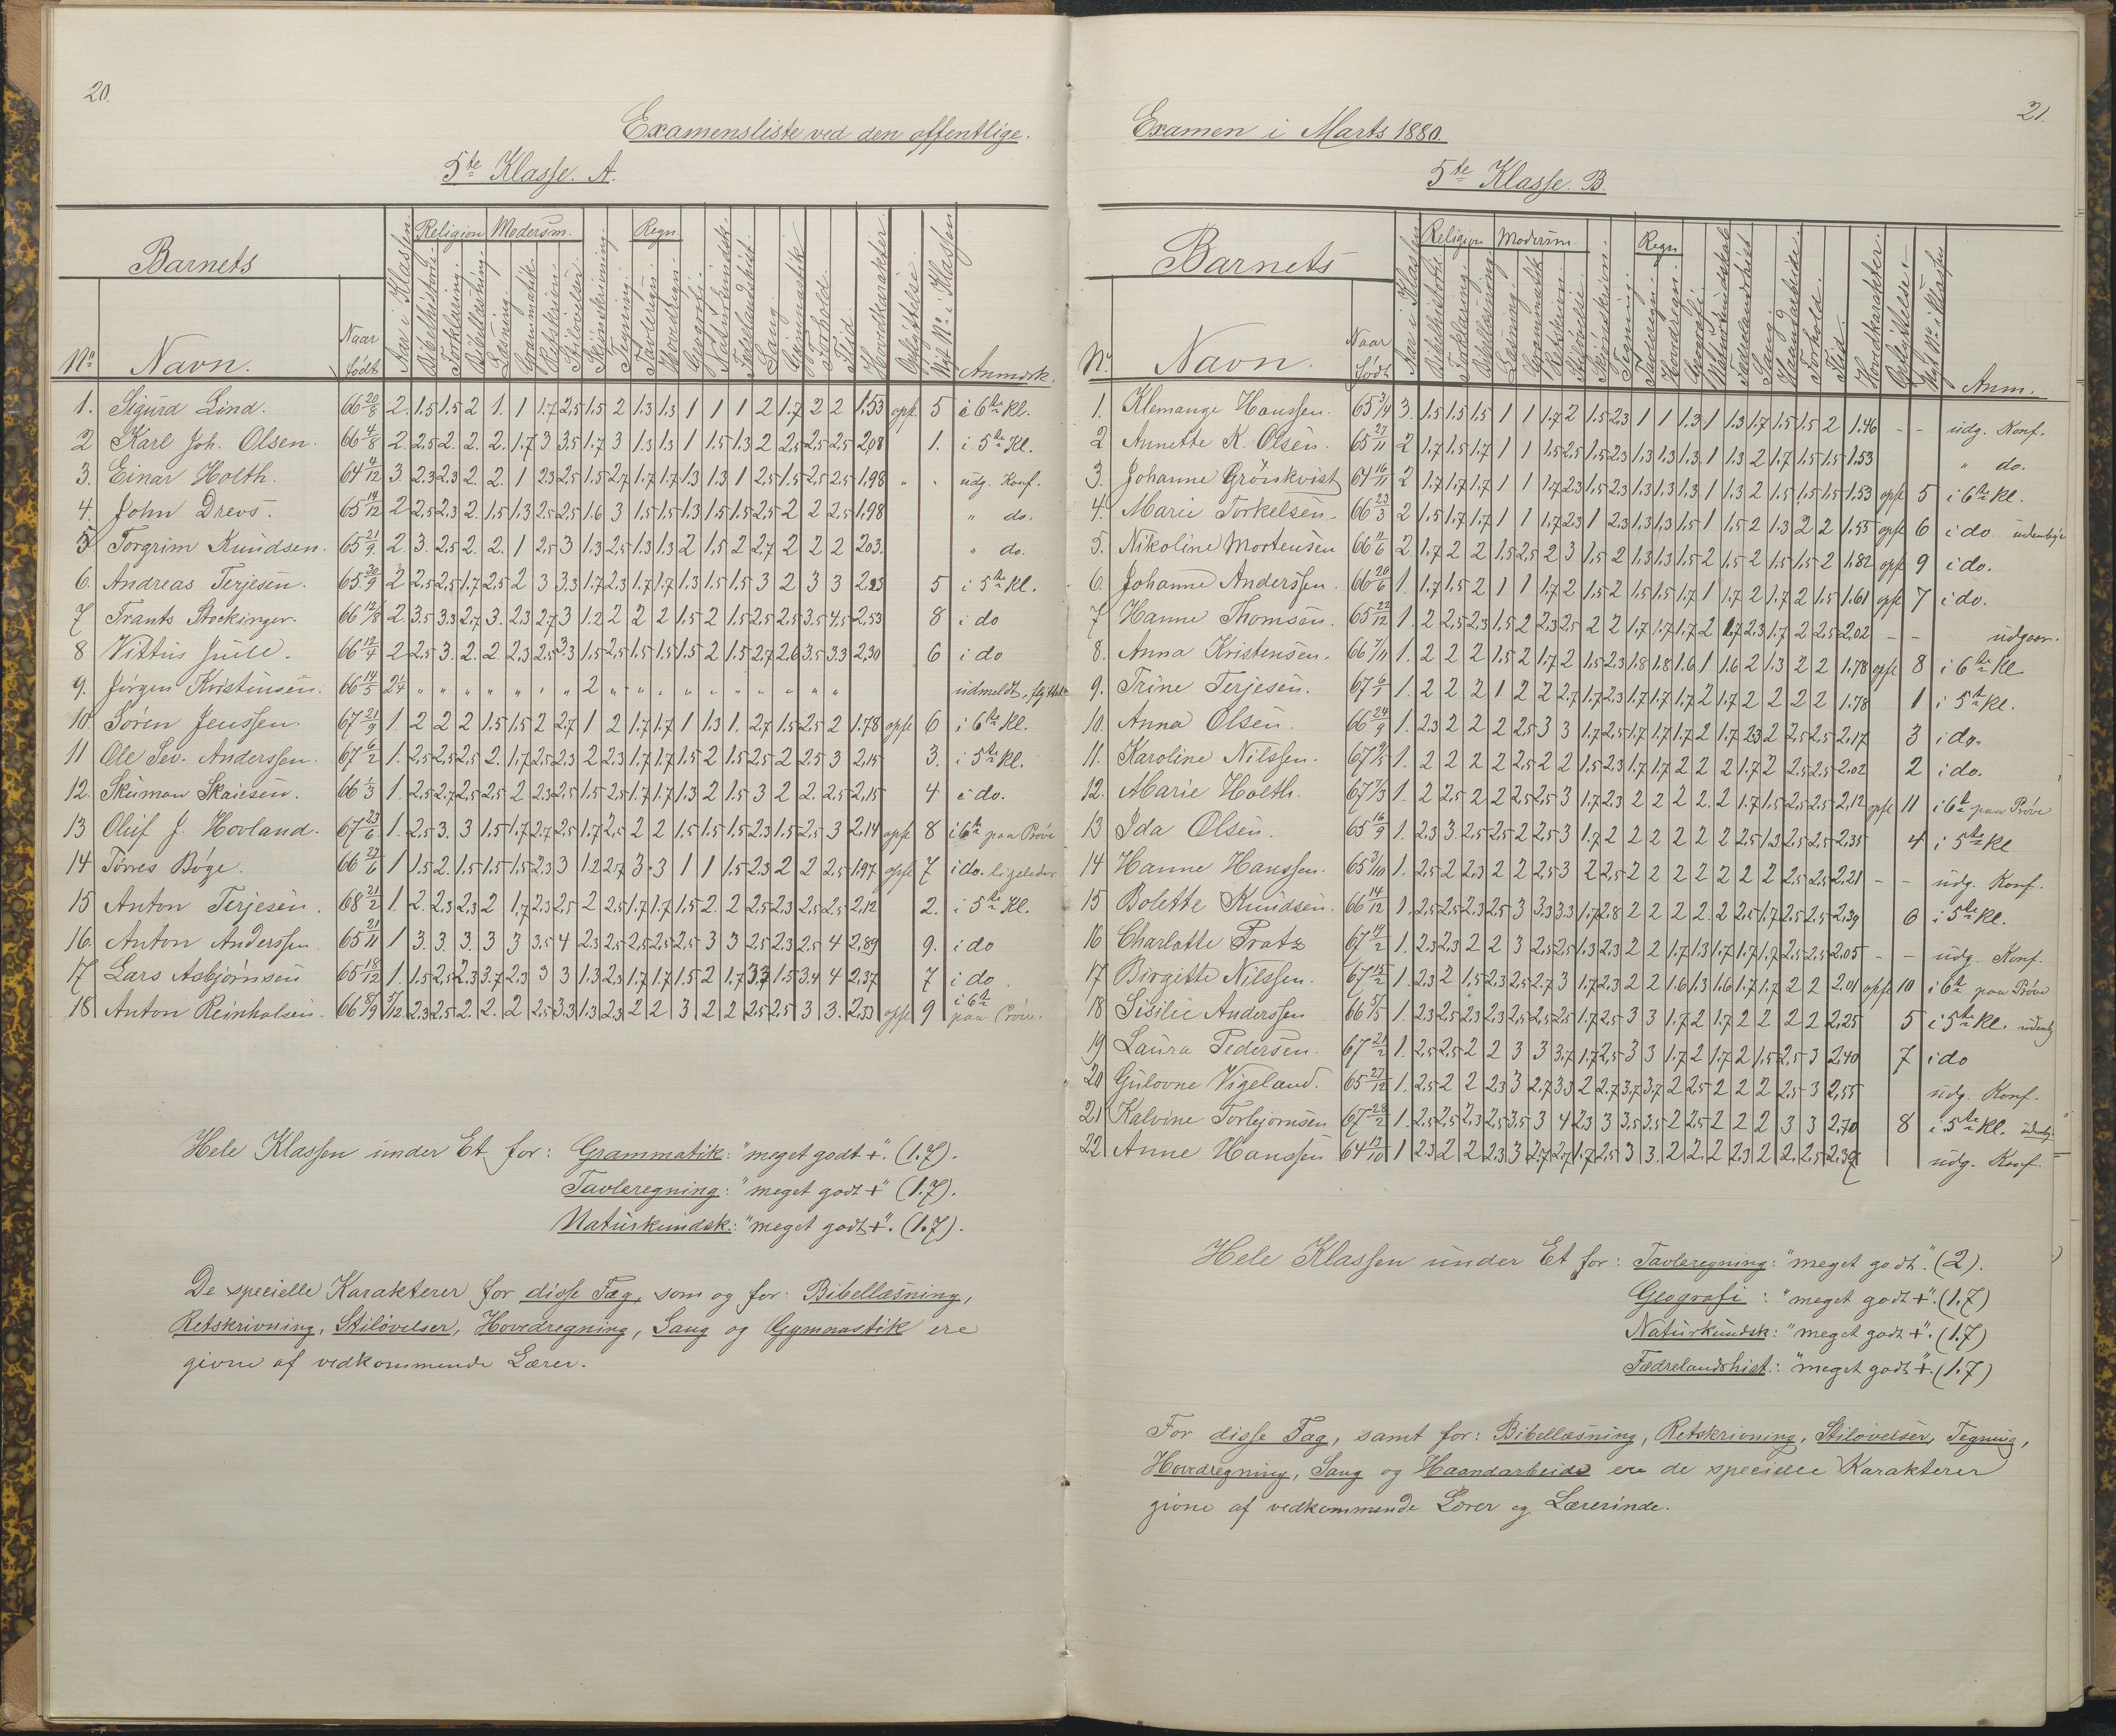 20.
Examensliste ved den offentlige.
5te Klasse. A.
Barnets
No Navn. Naar født Aar i Klassen Religion Bibelhistorie. Forklaring. Bibellæsning. Modersm. Læsning. Grammatik Retskrivn. Stiløvelser. Skjønskrivning. Tegning. Regn. Tavleregn. Hovedregn. Geografi. Naturkundsk. Fædrelandshist. Sang. Gymnastik Forhold. Flid. Hovedkarakter Opflyttelse. Nyt No i Klassen Anmærk.
1. Sigurd Lind. 66 20/8 2. 1.5 1.5 2 1. 1 1.7 2,5 1.5 2 1.3 1.3 1 1 1 2 1.7 2 2 1,53 opf. 5 i 6te Kl.
2 Karl Joh. Olsen. 66 4/8 2. 2.5 2. 2. 2. 1.7 3 3.5 1.7 3 1.3 1.3 1 1.5 1.3 2 2,5 2,5 2,5 2,08 1. i 5te Kl.
3. Einar Holth. 64 4/12 3. 2.3 2.3 2. 2. 1 2.3 2.5 1.5 2.7 1.7 1.7 1.3 1.3 1 2.5 1.5 2.5 2.5 1,98 " " udg. Konf.
4. John Drevs. 65 14/12 2 2,5 2,3 2. 1.5 1.3 2.5 2.5 1.6 3 1.5 1.5 1.3 1.5 1.5 2.5 2 2 2.5 1,98 " do.
5 Torgrim Knudsen. 65 21/9 2. 3. 2.5 2. 2. 1 2.5 3 1.3 2.5 1.3 1.3 2 1.5 2 2.7 2 2 2 2.03. " do.
6. Andreas Terjesen. 65 30/9 2 2.5 2.5 1.7 2.5 2 3 3.3 1.7 2.3 1.7 1.7 1.3 1.5 1.5 3 2 3 3 2.25 5 i 5te Kl.
7 Frants Stockinger. 66 12/8 2. 3.5 3.3 2.7 3. 2.3 2.7 3 1.2 2 2 2 1.5 2 1.5 2.5 2.5 3.5 4.5 2,53 8 i do
8 Vittus Juell. 66 12/4 2 2.5 3. 2. 2. 2,3 2.5 3.3 1,5 2,5 1,5 1,5 1.5 2 1.5 2.7 2.6 3.5 3.3 2,30 6 i do
9. Jørgen Kristensen. 66 14/5 2 1/4 " " " " " " " 2 " " " " " " " " " " udmeldt,
10. Søren Jenssen. 67 21/9 1. 2 2 2 1.5 1.5 2 2.7 1 2 1.7 1.7 1 1.3 1. 2.7 1.5 2.5 2 1,78 opfl 6 i 6te Kl.
11 Ole Sev. Anderssen. 67 6/2 1. 2.5 2.5 2.5 2. 1.7 2.5 2.3 2 2.3 1.7 1.7 1.5 2 1.5 2.5 2 2.5 3 2,15 3. i 5te Kl.
12. Skuman Skaiesen. 66 1/3 1. 2.5 2.7 2.5 2.5 2 2.3 2.5 1.5 2.5 1.7 1.7 1.3 2 1.5 3 2 2. 2.5 2,15 4 i do.
13 Oluf J. Hovland. 67 23/6 1. 2.5 3. 3 1.5 1.7 2.7 2.5 1.7 2.5 2 2 1.5 1.5 1.5 2.3 1.5 2.5 3 2.14 opfl 8 i 6te paa Prøve
14 Tørres Bøge. 66 27/6 1 1.5 2. 1.5 1.5 1.5 2.3 3 1.2 2.7 3 3 1 1 1.5 2.3 2 2 2.5 1,97 opfl 7 i do. ligeledes
15 Anton Terjesen. 68 21/2 1. 2. 2.3 2.3 2 1.7 2.3 2.5 2 2.5 1.7 1.7 1.5 2. 2 2.5 2.3 2.5 2.5 2,12 2. i 5te Kl.
16. Anton Anderssen. 65 21/11 1 3. 3. 3. 3 3 3.5 4 2.3 2.5 2.5 2.5 2.5 3 3 2.5 2.3 2.5 4 2,89 9. i do
17 Lars Asbjørnsen 65 18/12 1. 1.5 2.5 2.3 3.7 2.3 3 3 1.3 2.3 1.7 1.7 1.5 2 1.7 3.7 1.5 3.4 4 2,37 7 i do.
18 Anton Reinholsen. 66 8/9 5/12 2.3 2.5 2. 2. 2 2.5 3.3 1.3 2.3 2 2 3 2 2 2.5 2.5 3 3. 2,33 opfl 9 i 6te paa Prøve.
Hele Klassen under Et for: Grammatik: "meget godt +". (1.7).
Tavleregning: "meget godt +" (1.7).
Naturkundsk.: "meget godt +". (1.7).
De specielle Karakterer for disse Fag, som og for: Bibellæsning,
Retskrivning, Stiløvelser, Hovedregning, Sang og Gymnastik ere
givne af vedkommende Lærer.
21.
Examen i Marts 1880.
5te Klasse. B.
Barnets
Nr. Navn. Naar Født. Aar i Klassen Religion Bibelhistorie Forklaring. Bibellæsning Modersm. Læsning. Grammatik Retskrivn. Stiløvelse. Skjønskrivn. Tegning. Regn Tavleregn. Hovedregn. Geografi. Naturkundskab Fædrelandshist Sang. Haandarbeide. Forhold. Flid. Hovedkarakter Opflyttelse. Nyt No i Klassen Anm.
1. Klemange Hanssen. 65 3/4 3. 1.5 1.5 1.5 1 1 1.7 2 1.5 2.3 1 1 1.3 1 1.3 1.7 1.5 1.5 2 1.46 - - udg. Konf.
2 Annette K. Olsen. 65 27/11 2 1.7 1.5 1.7 1 1 1.5 2.5 1.5 2.3 1.3 1.3 1.3 1 1.3 2 1.7 1.5 1.5 1.53 " do.
3. Johanne Grönkvist 64 16/11 2 1.7 1.7 1.7 1 1 1.7 2.3 1.5 2.3 1.3 1.3 1.3 1 1.3 2 1.5 1.5 1.5 1.53 opfl 5 i 6te Kl.
4. Marie Torkelsen. 66 23/3 2 1.5 1.7 1.7 1 1 1.7 2.3 1 2.3 1.3 1.3 1.5 1 1.5 2 1.3 2 2 1,55 opfl 6 i do udenbyes
5. Nikoline Mortensen 66 11/6 2. 1.7 2 2 1.5 2.5 2 3 1.5 2 1.3 1.3 1.5 2 1.5 2 1.5 1.5 2 1,82 opfl 9 i do.
6. Johanne Anderssen. 66 20/6 1. 1.7 1.5 2 1 1 1.7 2 1.5 2 1.5 1.5 1.7 1 1.7 2 1.7 2 1.5 1.61 opfl 7 i do.
7 Hanne Thomsen. 65 22/12 1. 2 2.5 2.3 1.5 2 2.3 2.5 2 2 1.7 1.7 1.7 2 1.7 2.3 1.7 2 2.5 2.02 - - udgaar.
8. Anna Kristensen. 66 7/11 1. 2 2 2 1.5 2 1.7 2 1.5 2.3 1.8 1.8 1.6 1 1.6 2 1.3 2 2 1.78 opfl 8 i 6te Kl
9. Trine Terjesen. 67 6/1 1. 2 2 2 1 2 2 2.7 1.7 2.3 1.7 1.7 1.7 2 1.7 2 2 2 2 1.78 1 i 5te Kl.
10. Anna Olsen. 66 24/9 1. 2.3 2 2 2 2.5 3 3 1.7 2.5 1.7 1.7 1.7 2 1.7 2.3 2 2.5 2.5 2.17 3 i do.
11. Karoline Nilssen. 67 9/5 1. 2 2 2 2 2.5 2 2 1.5 2.3 1.7 1.7 2 2 2 1.7 2 2.5 2.5 2.02 2 i do.
12. Marie Holth. 67 7/3 1. 2 2.5 2 2 2.5 2.5 3 1.7 2.3 2 2 2 2. 2 1.7 1.5 2.5 2.5 2.12 opfl 11 i 6te paa Prøve
13 Ida Olsen. 65 16/9 1. 2.3 3. 2.5 2.5 2 2.5 3 1.7 2 2 2 2 2 2 2.5 1.3 2.5 2.5 2,35 4 i 5te Kl
14 Hanne Hanssen. 65 3/10 1. 2.5 2 2.3 2 2 2.5 3 2 2.5 2 2 2 2 2 2 2 2.5 2.5 2,21 - - udg. Konf.
15 Bolette Knudsen. 66 14/12 1. 2.5 2.5 2.3 2.5 3 3.3 3.3 1.7 2.8 2 2 2 2. 2 2.5 1.7 2.5 2.5 2,39 6 i 5te Kl.
16 Charlotte Fratz 67 14/2 1. 2.3 2.3 2 2 3 2.5 2.5 1.3 2.3 2 2 1.7 1.3 1.7 1.7 1.7 2.5 2.5 2.05 - - udg. Konf.
17 Birgitte Nilssen. 67 15/2 1 2.3 2 1.5 2.3 2.5 2.7 3 1.7 2.3 2 2 1.6 1.3 1.6 1.7 1.7 2 2 2.01 opfl 10 i 6te paa Prøve
18 Sisilie Anderssen 66 5/5 1. 2.3 2.5 2.3 2.3 2.5 2.5 2.5 1.7 2.5 3 3 1.7 2 1.7 2 2 2 2 2,25 5 i 5te Kl. udenby
19 Laura Pedersen. 67 21/2 1. 2.5 2.5 2 2 3 3 3.7 1.7 2.5 3 3 1.7 2 1.7 2 1.5 2.5 3 2,40 7 i do
20 Gulovne Vigeland. 65 27/12 1. 2.5 2 2 2.3 3 2.7 3.3 2 2.7 3.7 3.7 2 2.5 2 2 2 2.5 3 2,55 udg. Konf.
21 Kalvine Torbjørnsen 67 28/2 1. 2.5 2.5 2.3 2.5 3.5 3 4 2.3 3 3.5 3.5 2 2.5 2 2 2 3 3 2,70 8 i 5te Kl. udenby
22 Anne Hanssen 64 13/10 1 2.3 2 2 2.3 3 2.7 2.7 1.7 2.5 3 3. 2 2. 2 2.3 2 2. 2.5 2,39 udg. Konf.
Hele Klassen under Et for: Tavleregning: "meget godt". (2).
Geografi: "meget godt +". (1.7)
Naturkundsk: "meget godt +". (1.7)
Fædrelandshist.: "meget godt +. (1.7)
For disse Fag, samt for: Bibellæsning, Retskrivning, Stiløvelser, Tegning,
Hovedregning, Sang og Haandarbeide ere de specielle Karakterer
givne af vedkommende Lærer og Lærerinde.